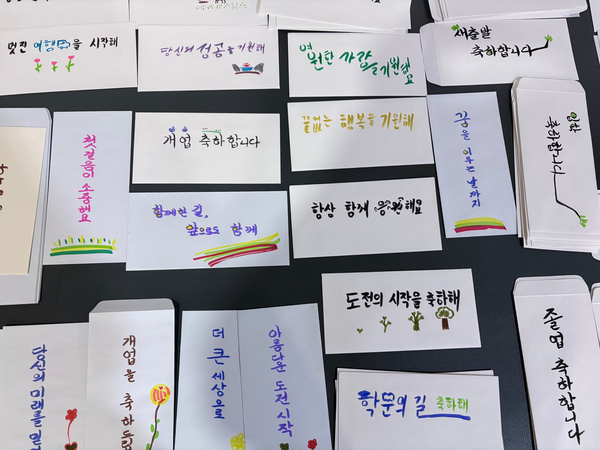 멋진 여행을 시작해
당신의 성공을 기원해
영원한 사랑
을 기원해요
새출발
축하합니다
첫걸음이 소중해요
개업 축하합니다
끝없는 행복을 기원해
꿈을 이루는 날까지
축하합니다
함께한 길,
앞으로도 함께
항상 함께 응원해요
도전의 시작을 축하해
당신의 미래를
개업을 축하드
더 큰 세상으로
아름다운 도전 시작
학문의 길 축하해
졸업 축하합니다